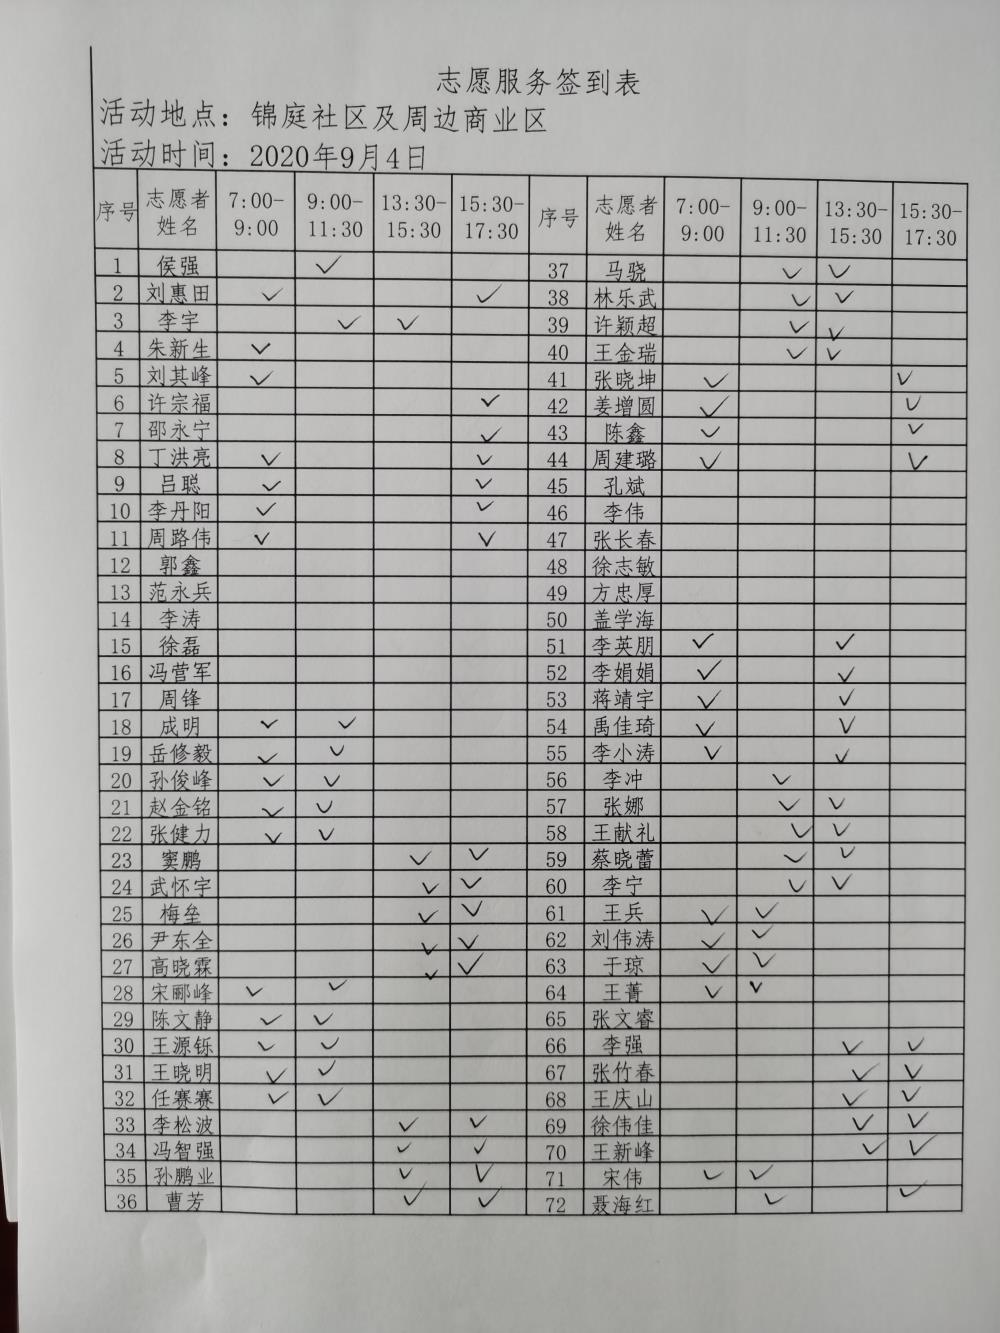 志愿服务签到表
活动地点：锦庭社区及周边商业区
活动时间：2020年9月4日
序号 志愿者姓名 7:00-9:00 9:00-11:30 13:30-15:30 15:30-17:30 序号 志愿者姓名 7:00-9:00 9:00-11:30 13:30-15:30 15:30-17:30
1 侯强 ✓ 37 马骁 ✓ ✓
2 刘惠田 ✓ ✓ 38 林乐武 ✓ ✓
3 李宇 ✓ ✓ 39 许颖超 ✓ ✓
4 朱新生 ✓ 40 王金瑞 ✓ ✓
5 刘其峰 ✓ 41 张晓坤 ✓ ✓
6 许宗福 ✓ 42 姜增圆 ✓ ✓
7 邵永宁 ✓ 43 陈鑫 ✓ ✓
8 丁洪亮 ✓ ✓ 44 周建璐 ✓ ✓
9 吕聪 ✓ ✓ 45 孔斌
10 李丹阳 ✓ ✓ 46 李伟
11 周路伟 ✓ ✓ 47 张长春
12 郭鑫 48 徐志敏
13 范永兵 49 方忠厚
14 李涛 50 盖学海
15 徐磊 51 李英朋 ✓ ✓
16 冯营军 52 李娟娟 ✓ ✓
17 周锋 53 蒋靖宇 ✓ ✓
18 成明 ✓ ✓ 54 禹佳琦 ✓ ✓
19 岳修毅 ✓ ✓ 55 李小涛 ✓ ✓
20 孙俊峰 ✓ ✓ 56 李冲 ✓
21 赵金铭 ✓ ✓ 57 张娜 ✓ ✓
22 张健力 ✓ ✓ 58 王献礼 ✓ ✓
23 窦鹏 ✓ ✓ 59 蔡晓蕾 ✓ ✓
24 武怀宇 ✓ ✓ 60 李宁 ✓ ✓
25 梅垒 ✓ ✓ 61 王兵 ✓ ✓
26 尹东全 ✓ ✓ 62 刘伟涛 ✓ ✓
27 高晓霖 ✓ ✓ 63 于琼 ✓ ✓
28 宋郦峰 ✓ ✓ 64 王菁 ✓ ✓
29 陈文静 ✓ ✓ 65 张文睿
30 王源铄 ✓ ✓ 66 李强 ✓ ✓
31 王晓明 ✓ ✓ 67 张竹春 ✓ ✓
32 任赛赛 ✓ ✓ 68 王庆山 ✓ ✓
33 李松波 ✓ ✓ 69 徐伟佳 ✓ ✓
34 冯智强 ✓ ✓ 70 王新峰 ✓ ✓
35 孙鹏业 ✓ ✓ 71 宋伟 ✓ ✓
36 曹芳 ✓ ✓ 72 聂海红 ✓ ✓